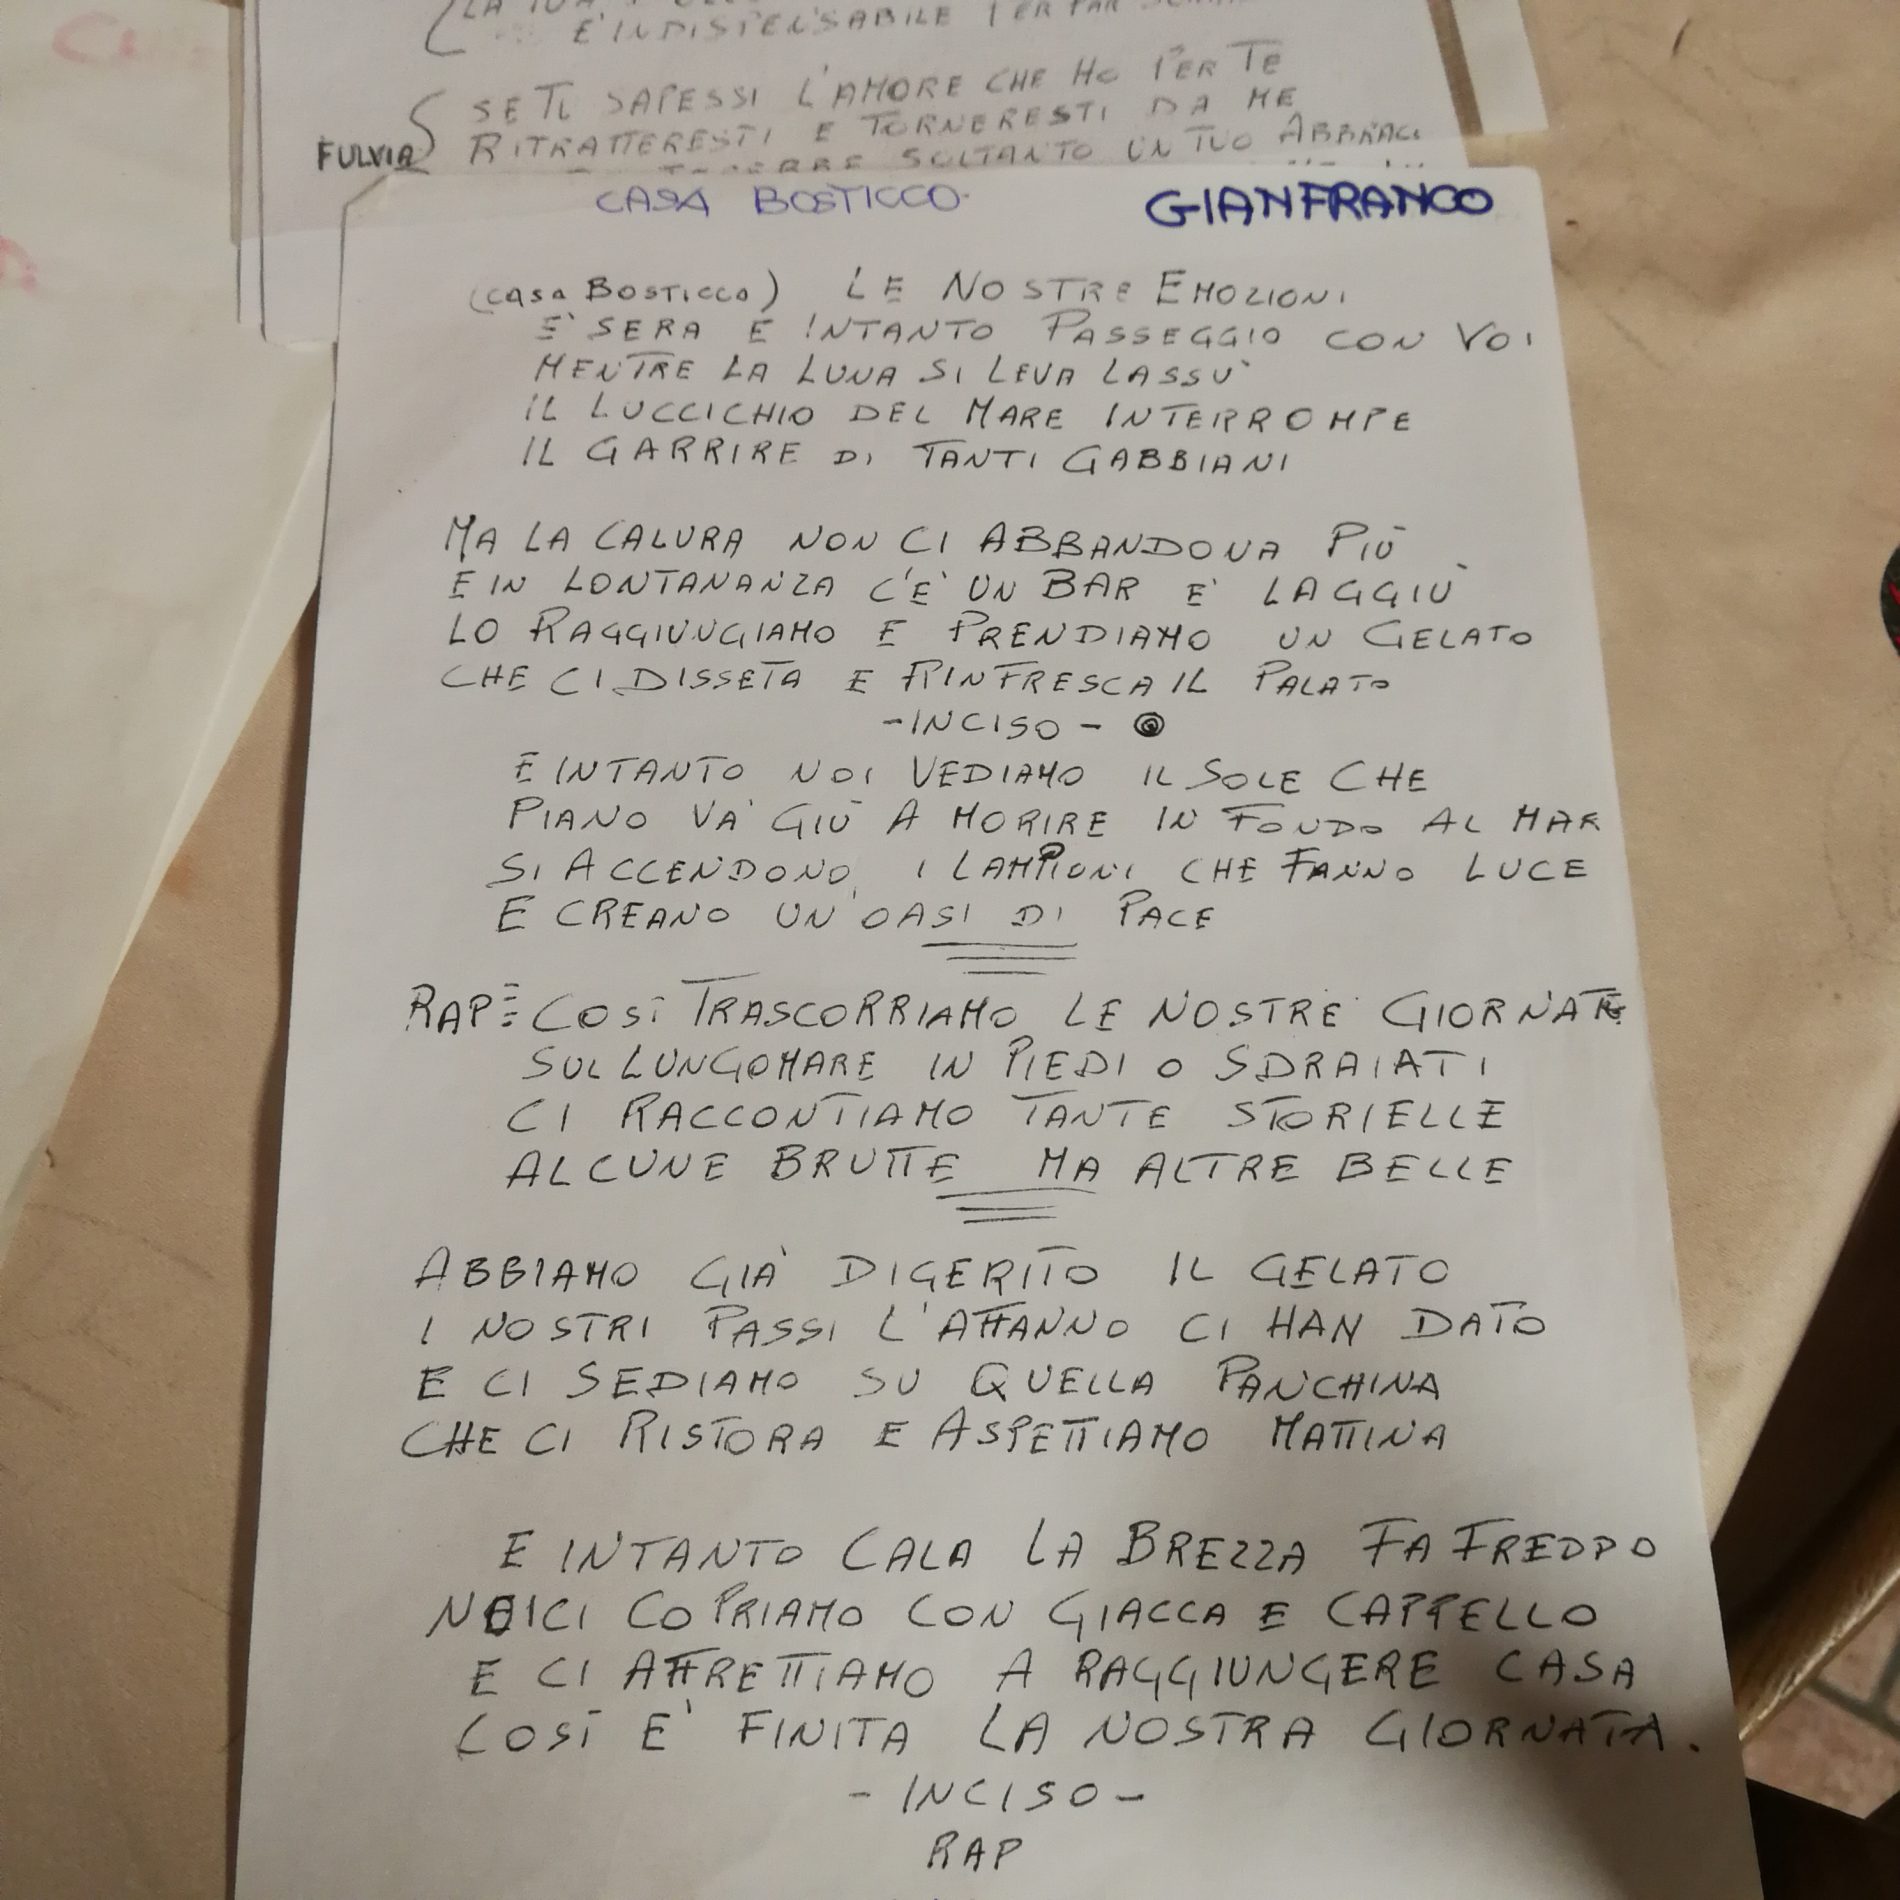 È INDISPENSABILE PER FAR
SE TU SAPESSI L'AMORE CHE HO PER TE
RITRATTERESTI E TORNERESTI DA ME
FULVIA
SOLTANTO UN TUO ABBRACC
CASA BOSTICCO.
GIANFRANCO
(CASA BOSTICCO) LE NOSTRE EMOZIONI
E' SERA E INTANTO PASSEGGIO CON VOI
MENTRE LA LUNA SI LEVA LASSU'
IL LUCCICHIO DEL MARE INTERROMPE
IL GARRIRE DI TANTI GABBIANI
MA LA CALURA NON CI ABBANDONA PIÙ
E IN LONTANANZA C'E' UN BAR E' LAGGIU'
LO RAGGIUNGIAMO E PRENDIAMO UN GELATO
CHE CI DISSETA E RINFRESCA IL PALATO
-INCISO-
E INTANTO NOI VEDIAMO IL SOLE CHE
PIANO VA' GIÙ A MORIRE IN FONDO AL MAR
SI ACCENDONO, I LAMPIONI CHE FANNO LUCE
E CREANO UN'OASI DI PACE
RAP: COSÌ TRASCORRIAMO LE NOSTRE GIORNATE
SUL LUNGOMARE IN PIEDI O SDRAIATI
CI RACCONTIAMO TANTE STORIELLE
ALCUNE BRUTTE MA ALTRE BELLE
ABBIAMO GIÀ DIGERITO IL GELATO
I NOSTRI PASSI L'AFFANNO CI HAN DATO
E CI SEDIAMO SU QUELLA PANCHINA
CHE CI RISTORA E ASPETTIAMO MATTINA
E INTANTO CALA LA BREZZA FA FREDDO
NOI CI COPRIAMO CON GIACCA E CAPPELLO
E CI AFFRETTIAMO A RAGGIUNGERE CASA
COSÌ E' FINITA LA NOSTRA GIORNATA.
-INCISO-
RAP